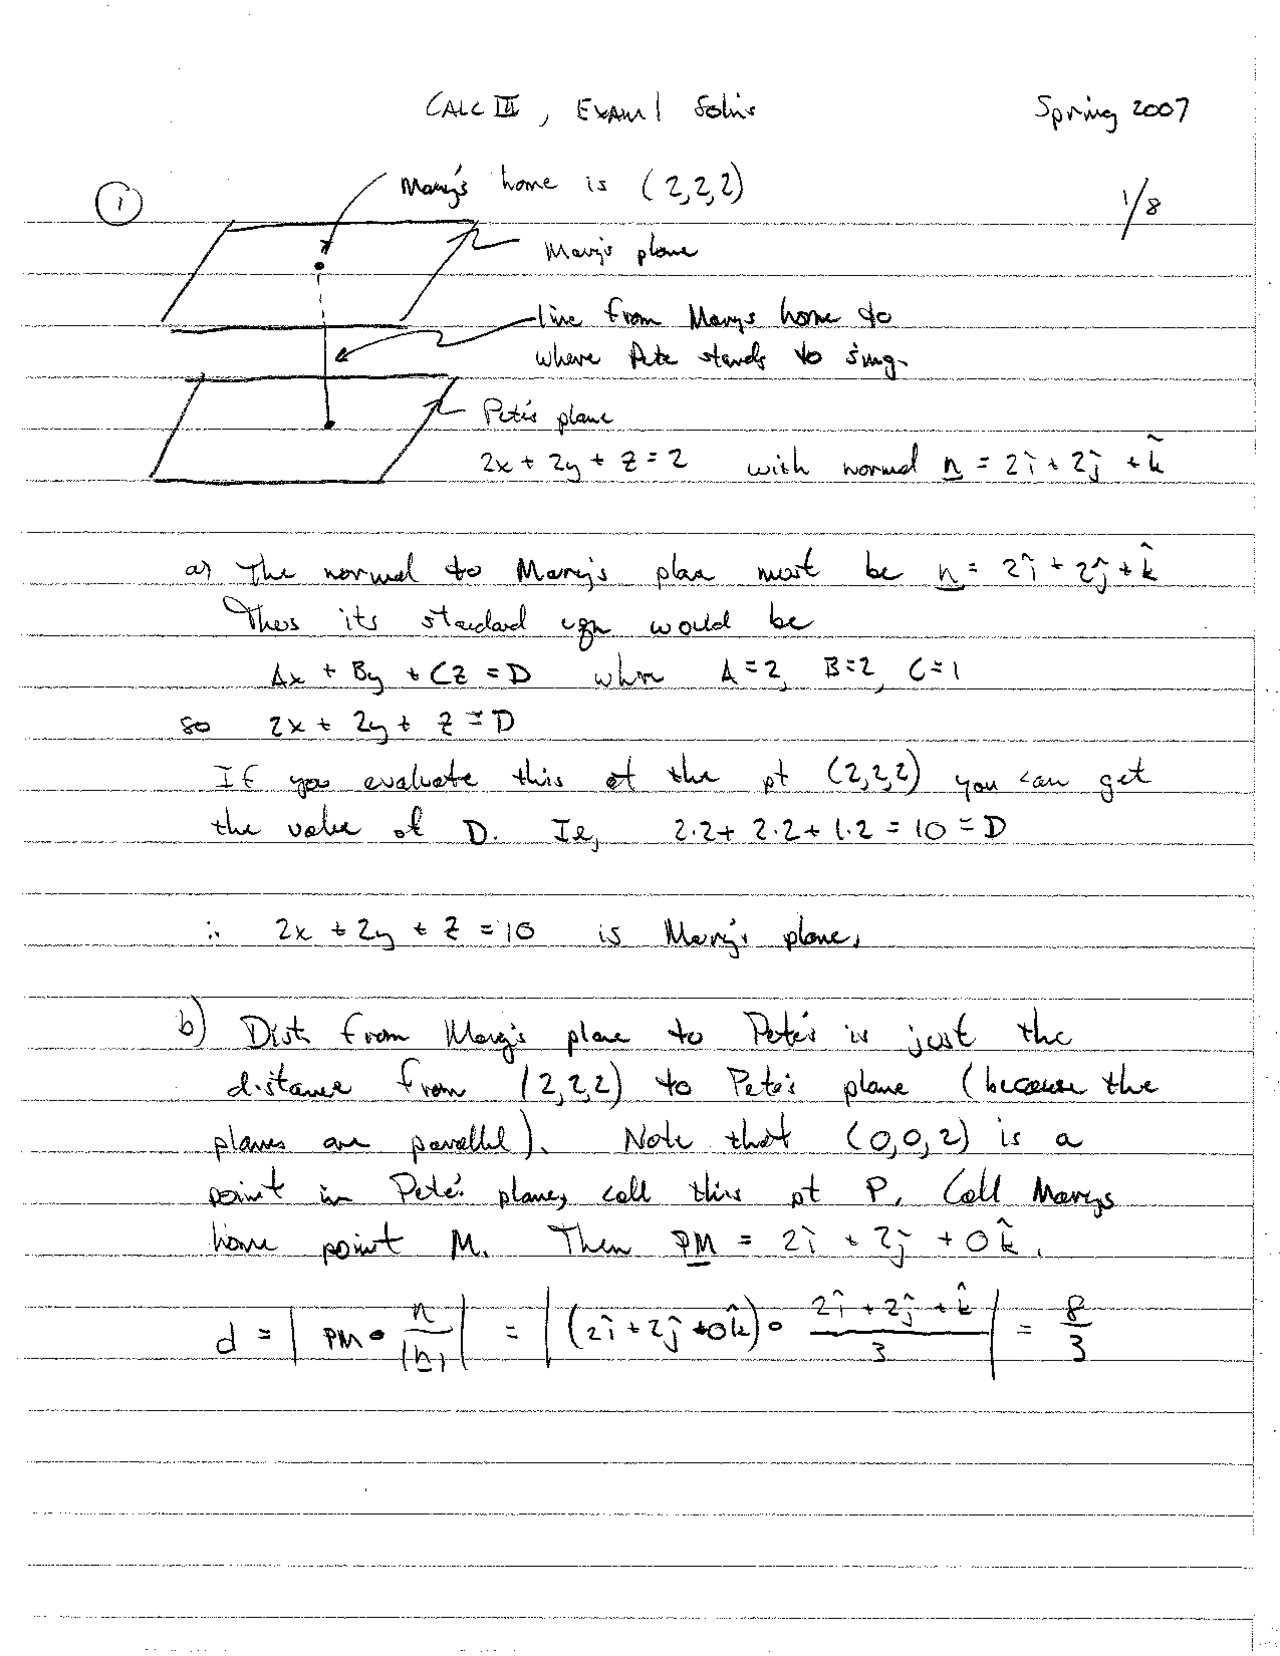 CALC III, EXAM 1 Solns
Spring 2007
1
Mary's home is (2,2,2)
1/8
Mary's plane
line from Marys home to
where Pete stands to sing.
Pete's plane
2x + 2y + z = 2 with normal n = 2î + 2ĵ + k̂
a) The normal to Mary's plane must be n = 2î + 2ĵ + k̂
Thus its standard eqn would be
Ax + By + Cz = D where A = 2, B = 2, C = 1
so 2x + 2y + z = D
If you evaluate this at the pt (2,2,2) you can get
the value of D. Ie, 2·2 + 2·2 + 1·2 = 10 = D
∴ 2x + 2y + z = 10 is Mary's plane.
b) Dist from Mary's plane to Pete's is just the
distance from (2,2,2) to Pete's plane (because the
planes are parallel). Note that (0,0,2) is a
point in Pete's plane, call this pt P. Call Marys
home point M. Then PM = 2î + 2ĵ + 0k̂.
d = | PM • n/|n| | = | (2î + 2ĵ + 0k̂) • (2î + 2ĵ + k̂)/3 | = 8/3